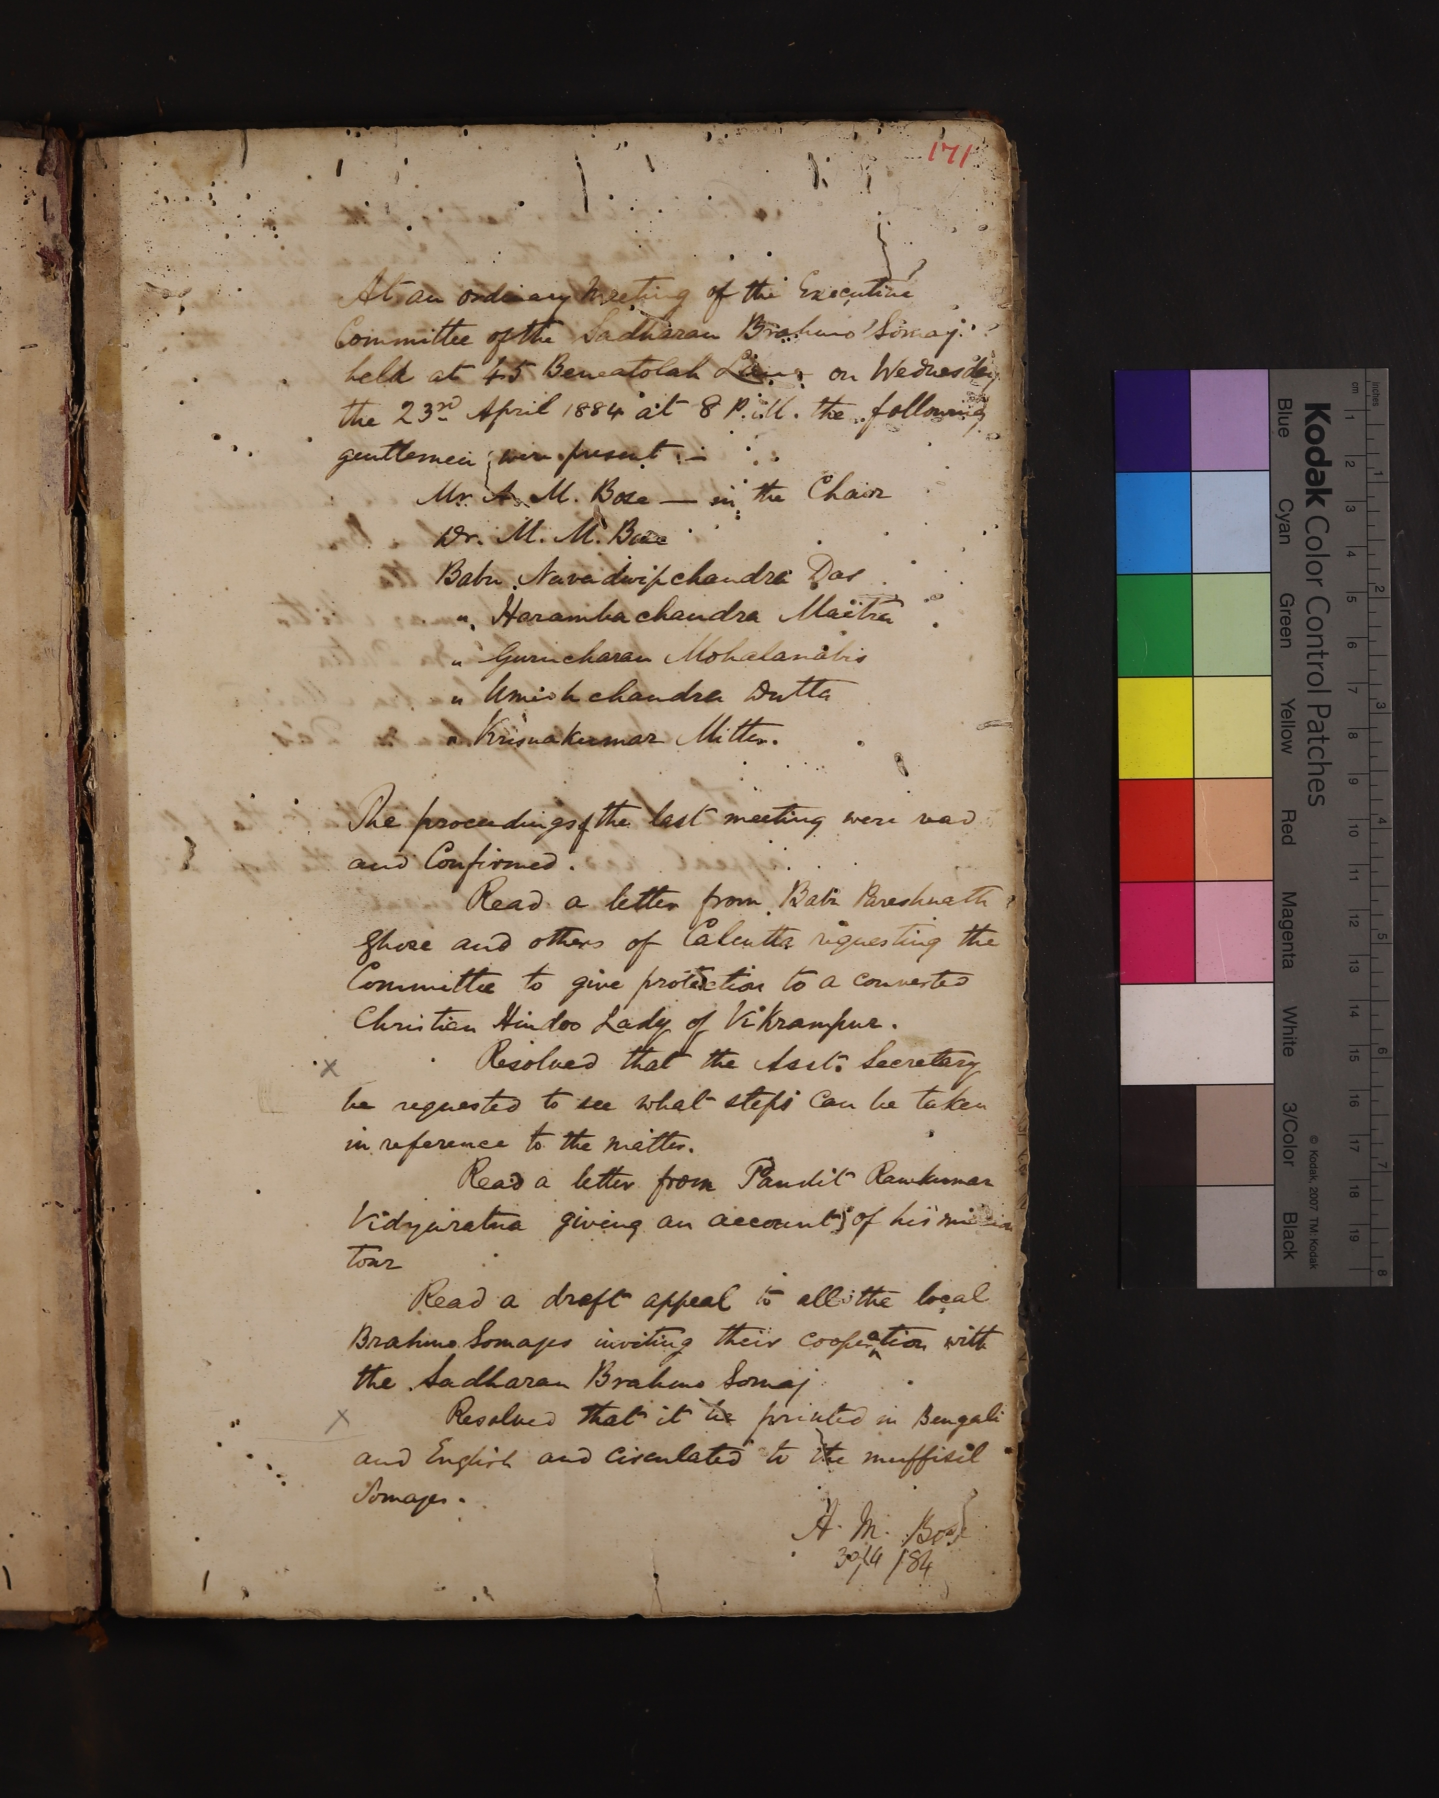 171
At an ordinary Meeting of the Executive
Committee of the Sadharan Brahmo Somaj
held at 45 Beneatolah Lane on Wednesday
the 23rd April 1884 at 8 P.M. the following
gentlemen were present :—
Mr. A. M. Bose — in the Chair
Dr. M. M. Bose
Babu Navadwipchandra Das
" Haramba chandra Maitra
" Gurucharan Mohalanabis
" Umesh chandra Dutta
" Krisnakumar Mitter.
The proceedings of the last meeting were read
and Confirmed.
Read a letter from Babu Pareshnath
Ghose and others of Calcutta requesting the
Committee to give protection to a converted
Christian Hindoo Lady of Vikrampur.
x Resolved that the Asst. Secretary
be requested to see what steps can be taken
in reference to the matter.
Read a letter from Pandit Ramkumar
Vidyaratna giving an account of his mission
tour
Read a draft appeal to all the local
Brahmo Somajes inviting their cooperation with
the Sadharan Brahmo Somaj
x Resolved that it be printed in Bengali
and English and circulated to the muffisil
Somajes.
A. M. Bose
30/4/84
Kodak Color Control Patches
Blue Cyan Green Yellow Red Magenta White 3/Color Black
© Kodak, 2007 TM: Kodak
cm 1 2 3 4 5 6 7 8 9 10 11 12 13 14 15 16 17 18 19
inches 1 2 3 4 5 6 7 8